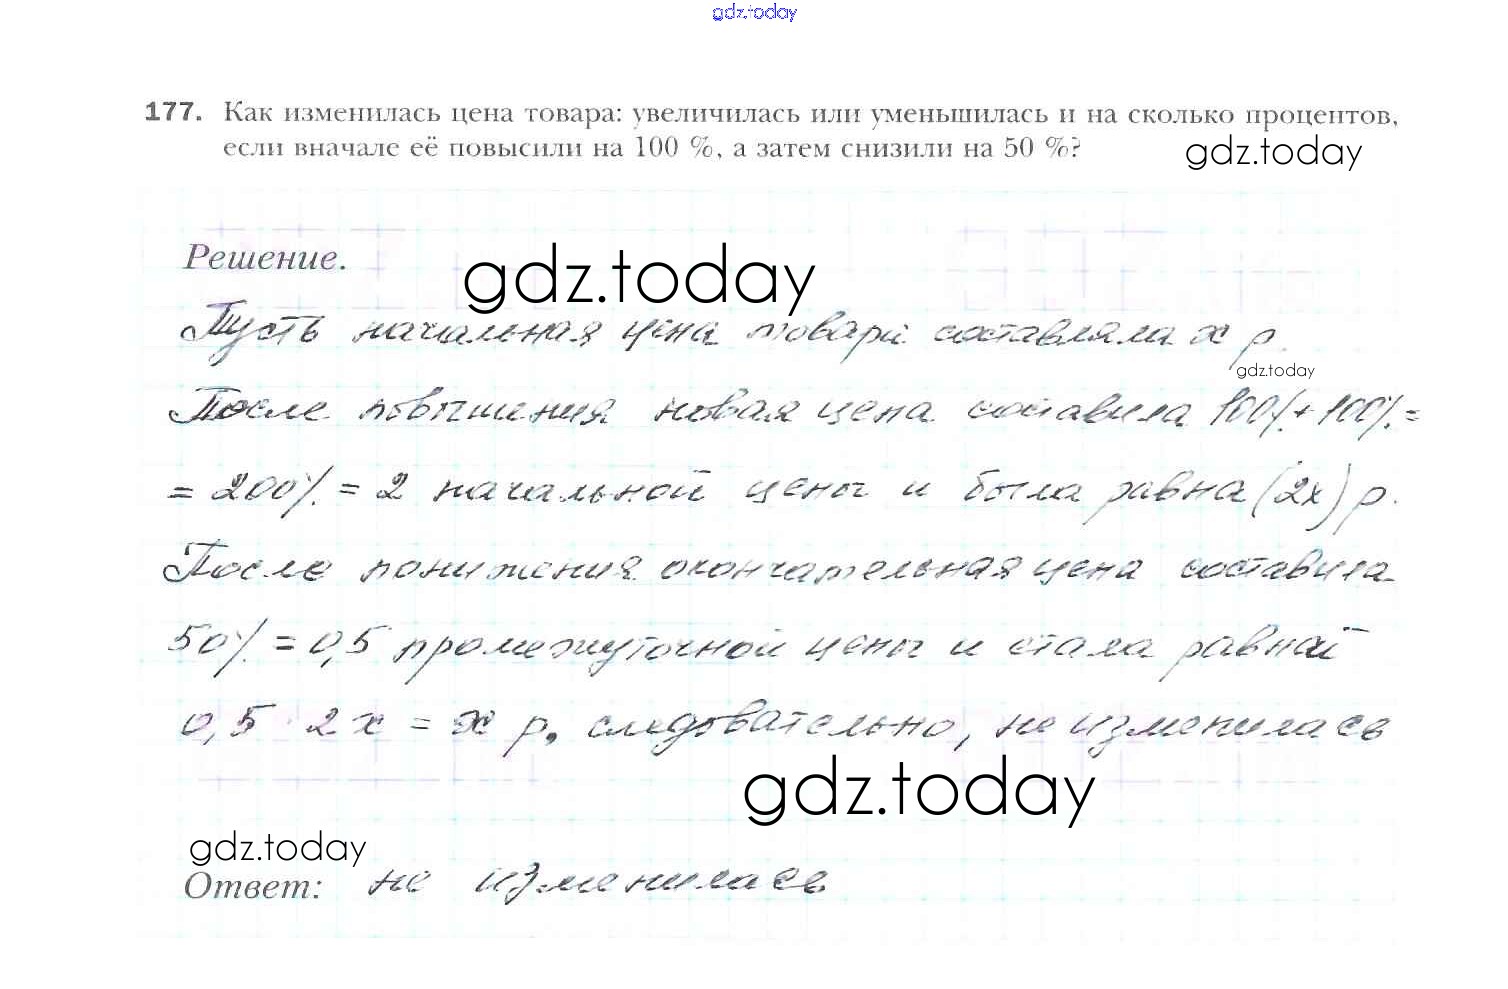 gdz.today
177. Как изменилась цена товара: увеличилась или уменьшилась и на сколько процентов,
если вначале её повысили на 100 %, а затем снизили на 50 %?
gdz.today
Решение.
gdz.today
Пусть начальная цена товара составляла x р.
gdz.today
После повышения новая цена составила 100% + 100% =
= 200% = 2 начальной цены и была равна (2x) р.
После понижения окончательная цена составила
50% = 0,5 промежуточной цены и стала равной
0,5 · 2x = x р, следовательно, не изменилась
gdz.today
gdz.today
Ответ: не изменилась